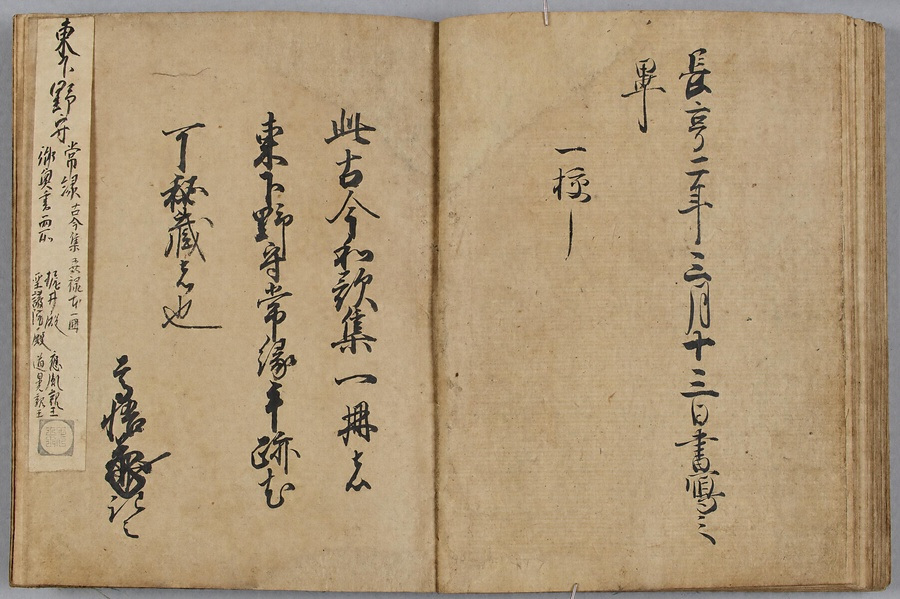 長享二年三月十三日書寫之
畢
一校
此古今和歌集一冊者
東下野守常縁手跡也
可秘蔵者也
東下野守常縁古今集 一冊
御奥書両所
梶井殿
聖護院殿 道晃親王